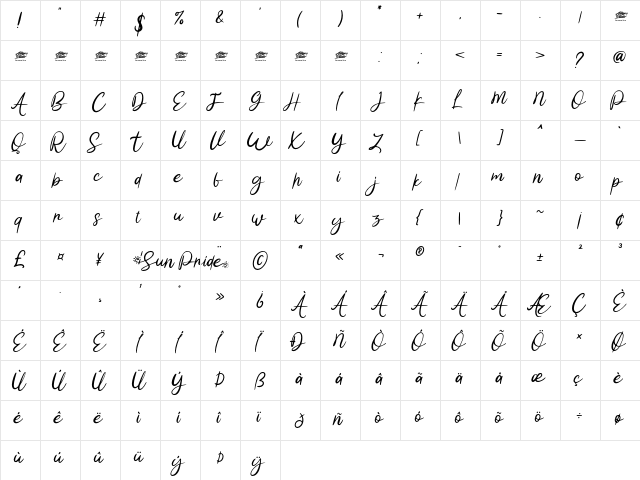 ! " # $ % & ' ( ) * + , - . /
: ; < = > ? @
A B C D E F G H I J K L M N O P
Q R S T U V W X Y Z [ \ ] ^ _ `
a b c d e f g h i j k l m n o p
q r s t u v w x y z { | } ~ ¡ ¢
£ ¤ ¥ ¦ Sun Pride © ª « ¬ ® ¯ ° ± ² ³
» ¿ À Á Â Ã Ä Å Æ Ç È
É Ê Ë Ì Í Î Ï Ð Ñ Ò Ó Ô Õ Ö × Ø
Ù Ú Û Ü Ý Þ ß à á â ã ä å æ ç è
é ê ë ì í î ï ð ñ ò ó ô õ ö ÷ ø
ù ú û ü ý þ ÿ